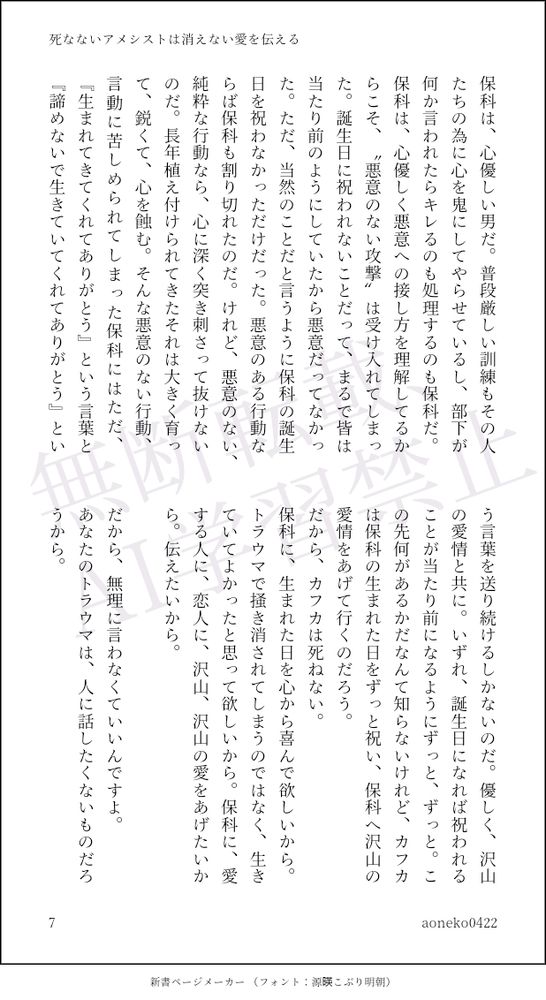 死なないアメシストは消えない愛を伝える
保科は、心優しい男だ。普段厳しい訓練もその人
たちの為に心を鬼にしてやらせているし、部下が
何か言われたらキレるのも処理するのも保科だ。
保科は、心優しく悪意への接し方を理解してるか
らこそ、〝悪意のない攻撃〟は受け入れてしまっ
た。誕生日に祝われないことだって、まるで皆は
当たり前のようにしていたから悪意だってなかっ
た。ただ、当然のことだと言うように保科の誕生
日を祝わなかっただけだった。悪意のある行動な
らば保科も割り切れたのだ。けれど、悪意のない、
純粋な行動なら、心に深く突き刺さって抜けない
のだ。長年植え付けられてきたそれは大きく育っ
て、鋭くて、心を蝕む。そんな悪意のない行動、
言動に苦しめられてしまった保科にはただ、
『生まれてきてくれてありがとう』という言葉と
『諦めないで生きていてくれてありがとう』とい
う言葉を送り続けるしかないのだ。優しく、沢山
の愛情と共に。いずれ、誕生日になれば祝われる
ことが当たり前になるようにずっと、ずっと。こ
の先何があるかだなんて知らないけれど、カフカ
は保科の生まれた日をずっと祝い、保科へ沢山の
愛情をあげて行くのだろう。
だから、カフカは死ねない。
保科に、生まれた日を心から喜んで欲しいから。
トラウマで掻き消されてしまうのではなく、生き
ていてよかったと思って欲しいから。保科に、愛
する人に、恋人に、沢山、沢山の愛をあげたいか
ら。伝えたいから。
だから、無理に言わなくていいんですよ。
あなたのトラウマは、人に話したくないものだろ
うから。
無断転載
AI学習禁止
7
aoneko0422
新書ページメーカー（フォント：源暎こぶり明朝）